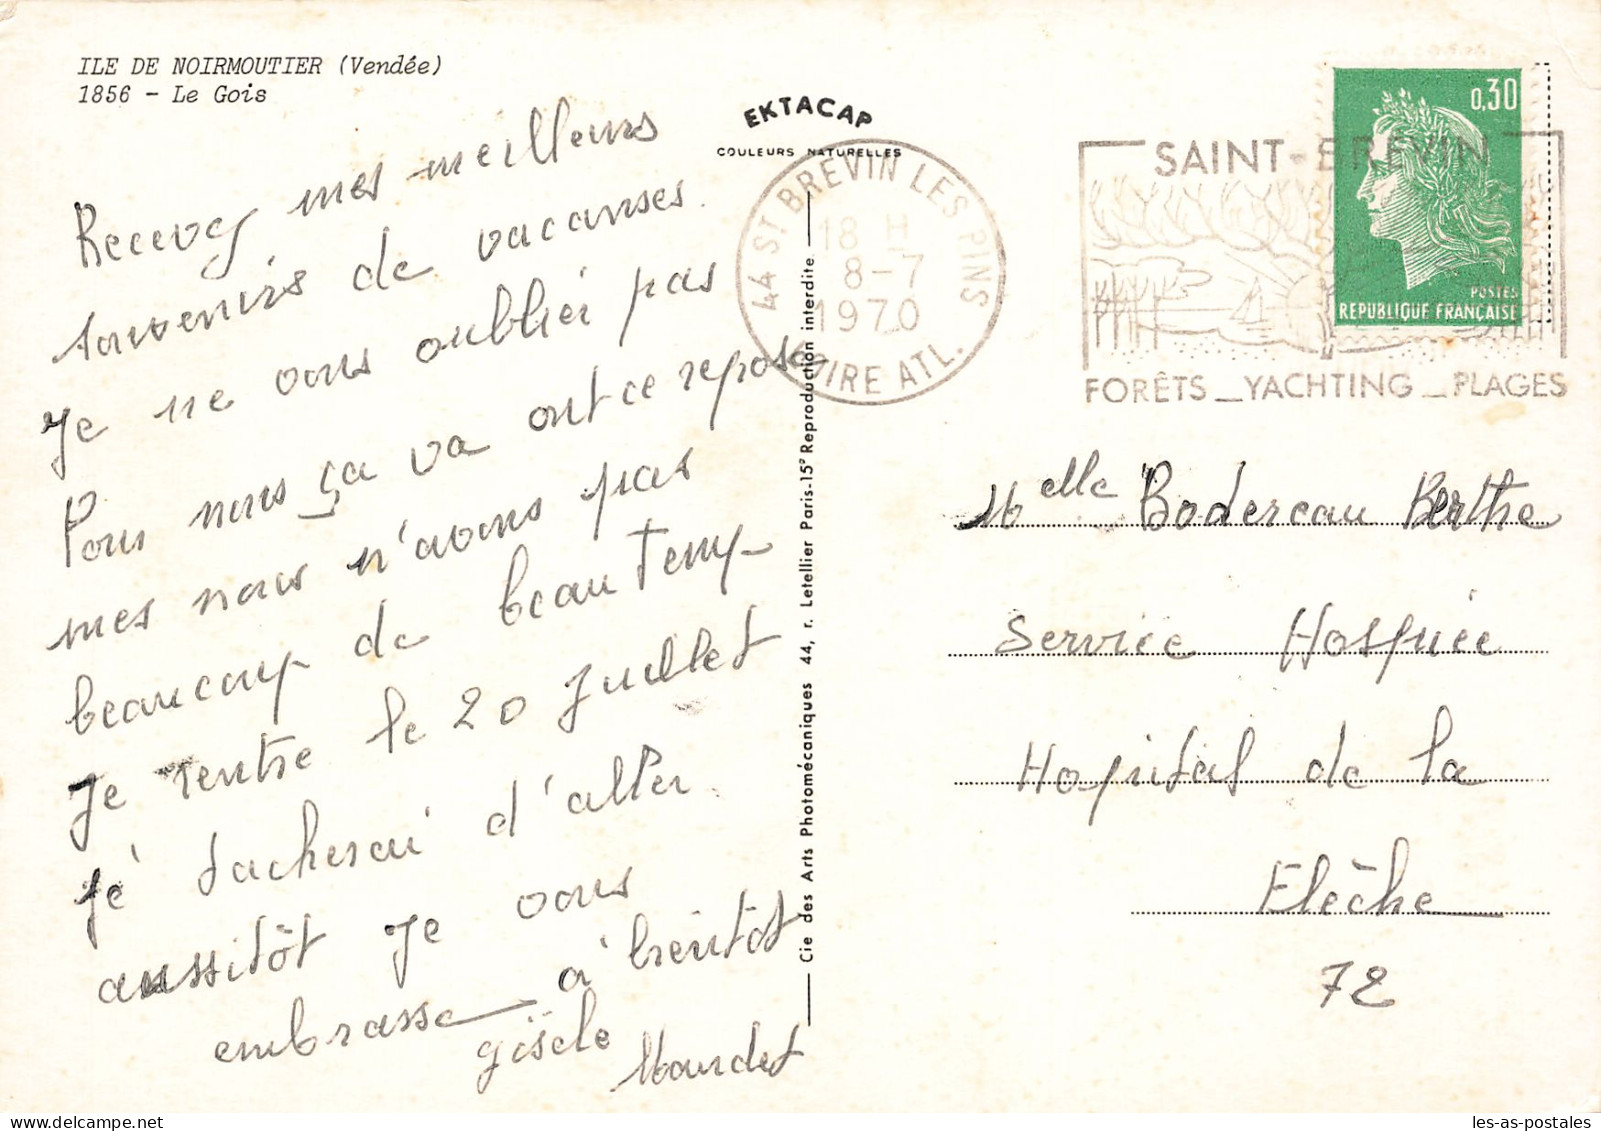 ILE DE NOIRMOUTIER (Vendée)
1856 - Le Gois
EKTACAP
COULEURS NATURELLES
Recevez mes meilleurs
souvenirs de vacanses.
Je ne vous oublier pas
Pour nous ça va ont ce repose
mes nous n'avons pas
beaucoup de beau Temp
Je rentre le 20 Juillet
Je tacherai d'aller
aussitôt Je vous
embrasse à bientot
gisèle
Cie des Arts Photomécaniques 44, r. Letellier Paris-15e Reproduction interdite
44 ST BREVIN LES PINS
18 H
8-7
1970
LOIRE ATL.
SAINT-BREVIN
FORÊTS _ YACHTING _ PLAGES
0,30
POSTES
REPUBLIQUE FRANÇAISE
Melle Bodereau Berthe
Service Hospiée
Hopital de la
Flèche
72
les-as-postales